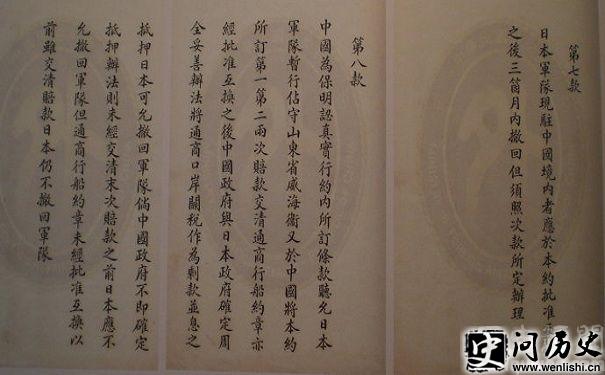 第七款
日本軍隊現駐中國境內者應於本約批准互
之後三箇月內撤回但須照次款所定辦理
第八款
中國為保明認真實行約內所訂條款聽允日本
軍隊暫行佔守山東省威海衛又於中國將本約
所訂第一第二兩次賠款交清通商行船約章亦
經批准互換之後中國政府與日本政府確定周
全妥善辦法將通商口岸關稅作為剩款並息之
抵押日本可允撤回軍隊倘中國政府不即確定
抵押辦法則未經交清末次賠款之前日本應不
允撤回軍隊但通商行船約章未經批准互換以
前雖交清賠款日本仍不撤回軍隊
问历史
www.wenlishi.cn